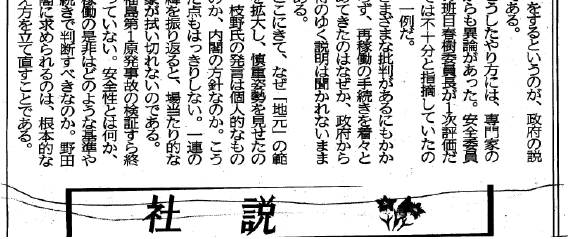 をするというのが、政府の説
ある。
うしたやり方には、専門家の
らも異論があった。安全委員
班目春樹委員長が1次評価だ
は不十分と指摘していたの
一例だ。
まざまな批判があるにもかか
ず、再稼働の手続きを着々と
てきたのはなぜか、政府から
のゆく説明は聞かれないまま
ある。
こにきて、なぜ「地元」の範
拡大し、慎重姿勢を見せたの
枝野氏の発言は個人的なもの
のか、内閣の方針なのか。こう
た点もはっきりしない。一連の
緯を振り返ると、場当たり的な
象が拭い切れないのである。
福島第1原発事故の検証すら終
っていない。安全性とは何か、
稼働の是非はどのような基準や
続きで判断すべきなのか。野田
閣に求められるのは、根本的な
え方を立て直すことである。
社説